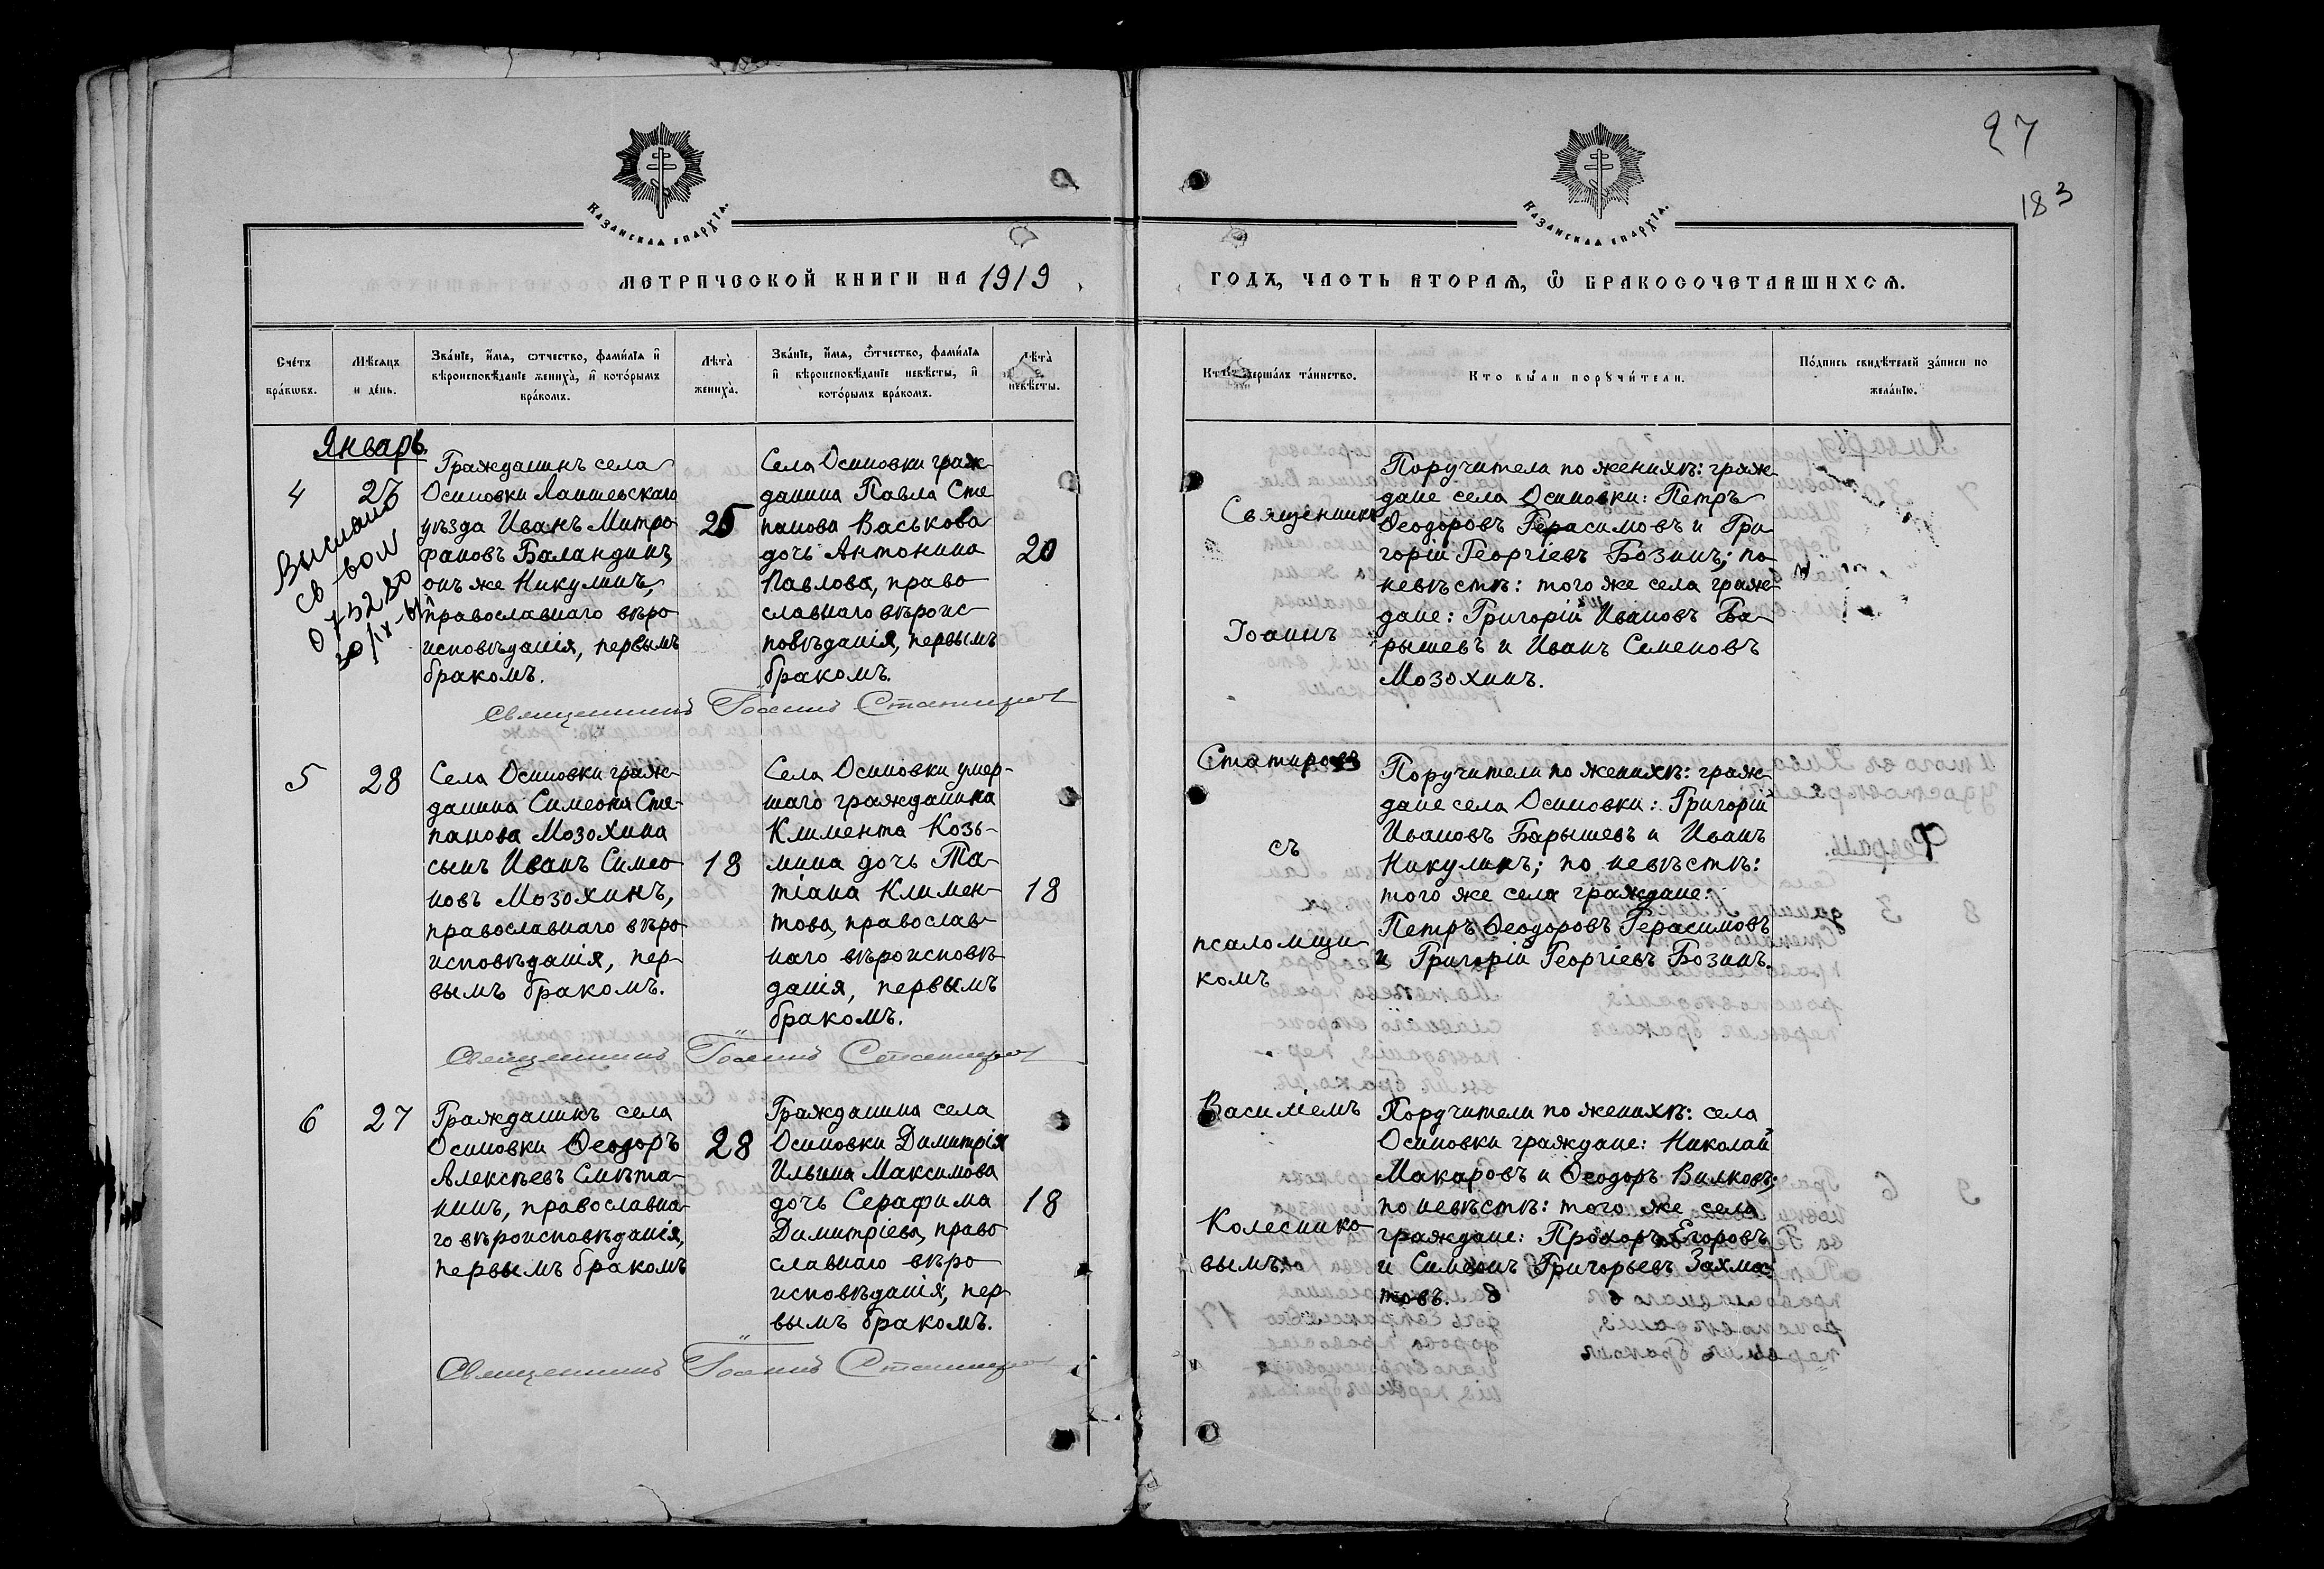 27
183
Казанская епархїа.
Казанская епархїа.
МЕТРИЧЕСКОЙ КНИГИ НА 1919
ГОДЪ, ЧАСТЬ ВТОРАѦ, Ѿ БРАКОСОЧЕТАВШИХСѦ.
Сче́тъ бра́кѡвъ.
Мѣ́сѧцъ и де́нь.
Зва́нїе, и́мѧ, ѻтчество, фами́лїѧ и вѣроисповѣ́данїе жениха̀, и҆ кото́рымъ бра́комъ.
Лѣ́та жениха̀.
Зва́нїе, и́мѧ, ѻтчество, фами́лїѧ и҆ вѣроисповѣ́данїе невѣ́сты, и҆ кото́рымъ бра́комъ.
Лѣ́та невѣ́сты.
Кто̀ соверша́лъ та́инство.
Кто бы́ли порꙋчи́тели.
По́дпись свидѣ́телей за́писи по жела́нїю.
Январь.
4
Выслано
св вом
Гражданинъ села
Осиновки Лаишевскаго
уѣзда Иванъ Митро
фановъ Баландинъ,
онъ же Никулинъ,
православнаго вѣро
исповѣданія, первымъ
бракомъ.
25
Села Осиновки граж
данина Павла Сте
панова Васькова
дочь Антонина
Павлова, право
славнаго вѣроис
повѣданія, первымъ
бракомъ.
20
Священникъ Іоаннъ Статировъ
5
28
Села Осиновки граж
данина Симеона Сте-
панова Мозохина
сынъ Иванъ Симео
новъ Мозохинъ,
православнаго вѣро
исповѣданія, пер-
вымъ бракомъ.
18
Села Осиновки умер-
шаго гражданина
Климента Козь-
мина дочь Та-
тіана Климен-
това, православ
наго вѣроисповѣ
данія, первымъ
бракомъ.
18
Священникъ Іоаннъ Статировъ
6
27
Гражданинъ села
Осиновки Ѳеодоръ
Алексѣевъ Смѣта-
нинъ, православна-
го вѣроисповѣданія,
первымъ бракомъ
28
Гражданина села
Осиновки Димитрія
Ильина Максимова
дочь Серафима
Димитріева, право
славнаго вѣро
исповѣданія, пер
вымъ бракомъ.
18
Священникъ Іоаннъ Статировъ
Священникъ
Іоаннъ
Статировъ
съ
псаломщи
комъ
Василіемъ
Колеснико
вымъ
Поручители по женихѣ: граж
дане села Осиновки: Петръ
Ѳеодоровъ Герасимовъ и Гри
горій Георгіевъ Бозинъ; по
невѣстѣ: того же села граж
дане: Григорій Ивановъ Ба
рышевъ и Иванъ Семеновъ
Мозохинъ.
Поручители по женихѣ: граж
дане села Осиновки: Григорій
Ивановъ Барышевъ и Иванъ
Никулинъ; по невѣстѣ:
того же села граждане:
Петръ Ѳеодоровъ Герасимовъ
и Григорій Георгіевъ Бозинъ.
Поручители по женихѣ: села
Осиновки граждане: Николай
Макаровъ и Ѳеодоръ Вилковъ;
по невѣстѣ: того же села
граждане: Прохоръ Егоровъ
и Симеонъ Григорьевъ Захма
товъ.